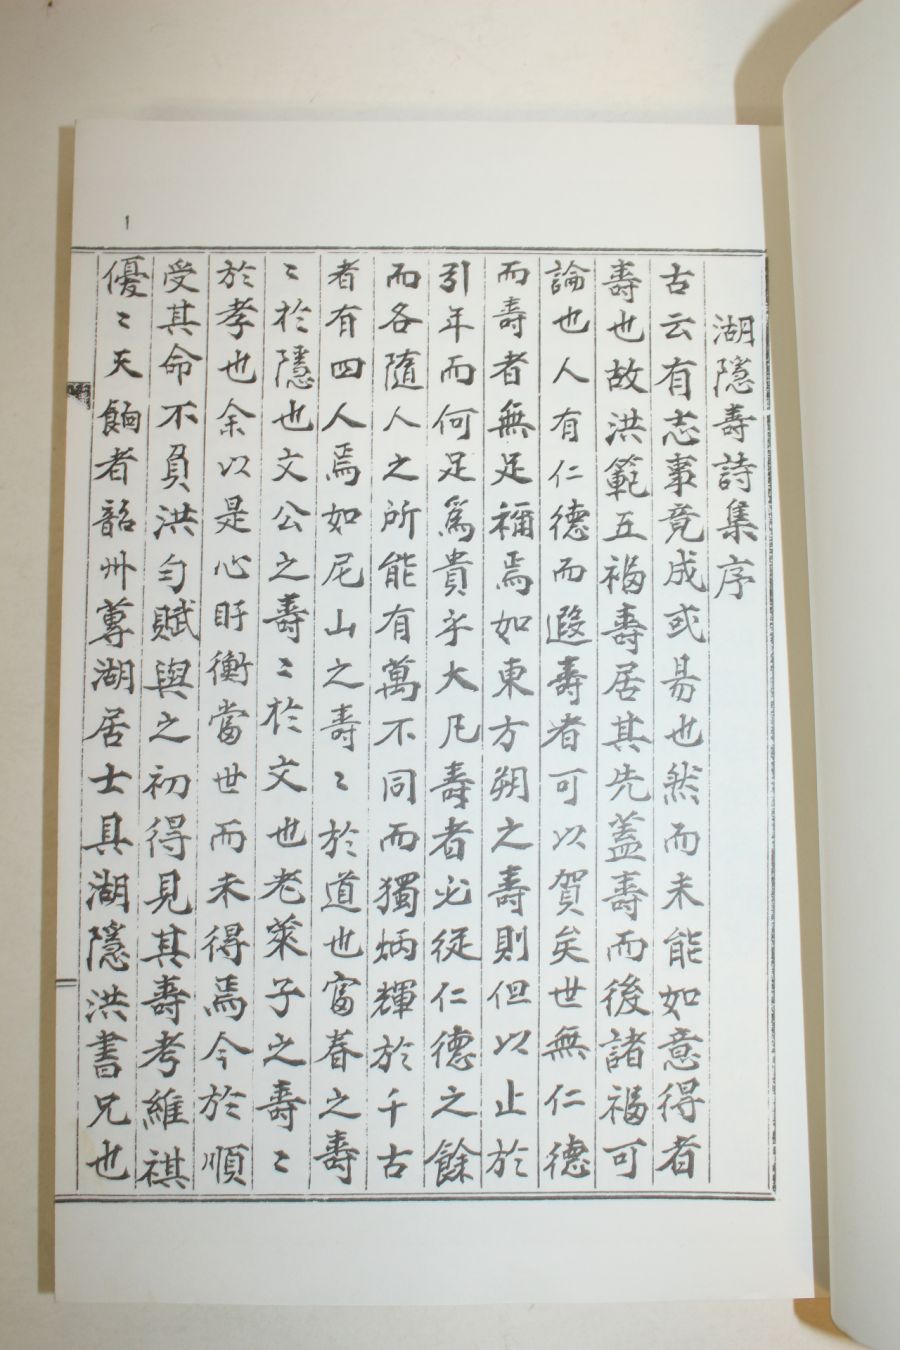 1
湖隱壽詩集序
古云有志事竟成或易也然而未能如意得者
壽也故洪範五福壽居其先蓋壽而後諸福可
論也人有仁德而遐壽者可以賀矣世無仁德
而壽者無足稱焉如東方朔之壽則但以止於
引年而何足爲貴乎大凡壽者必從仁德之餘
而各隨人之所能有萬不同而獨炳輝於千古
者有四人焉如尼山之壽〻於道也富春之壽
〻於隱也文公之壽〻於文也老萊子之壽〻
於孝也余以是心盱衡當世而未得焉今於順
受其命不負洪勻賦與之初得見其壽考維祺
優〻天餉者韶州蓴湖居士具湖隱洪書兄也